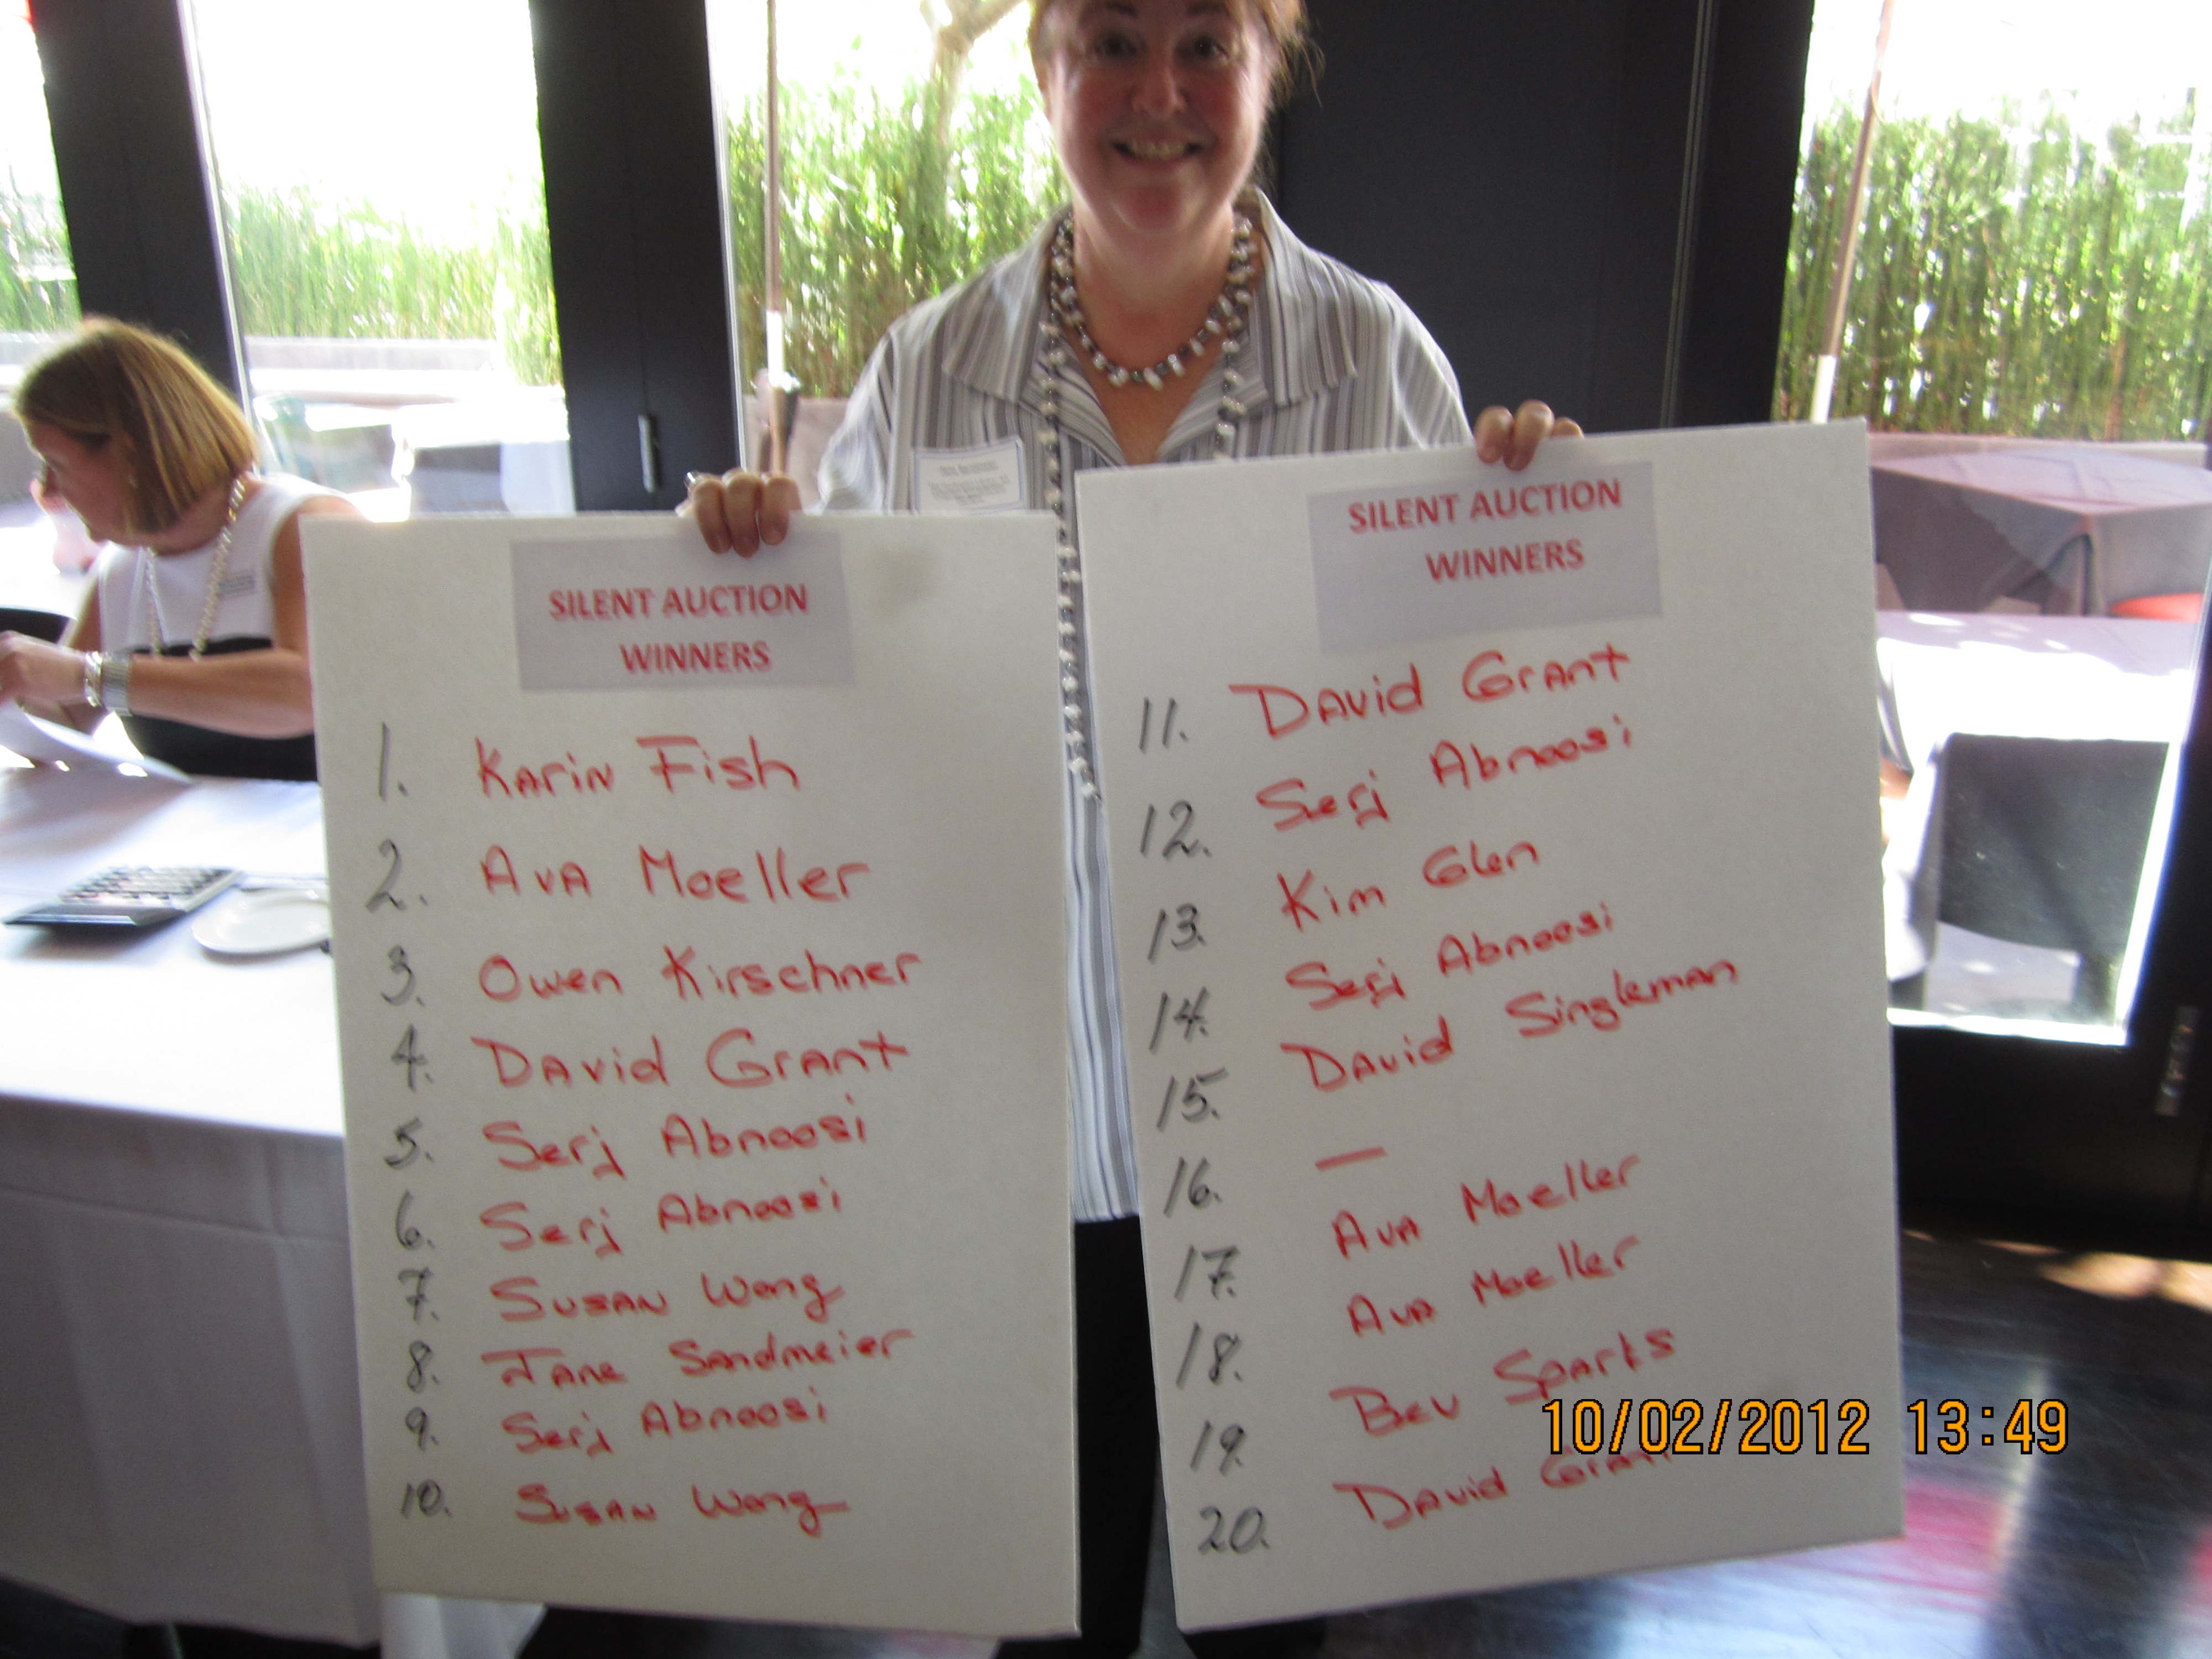 SILENT AUCTION
WINNERS
1. Karin Fish
2. Ava Moeller
3. Owen Kirschner
4. David Grant
5. Serj Abnoosi
6. Serj Abnoosi
7. Susan Wong
8. Jane Sandmeier
9. Serj Abnoosi
10. Susan Wong
SILENT AUCTION
WINNERS
11. David Grant
12. Serj Abnoosi
13. Kim Glen
14. Serj Abnoosi
15. David Singleman
16. —
17. Ava Moeller
18. Ava Moeller
19. Bev Sparks
20. David Grant
10/02/2012 13:49